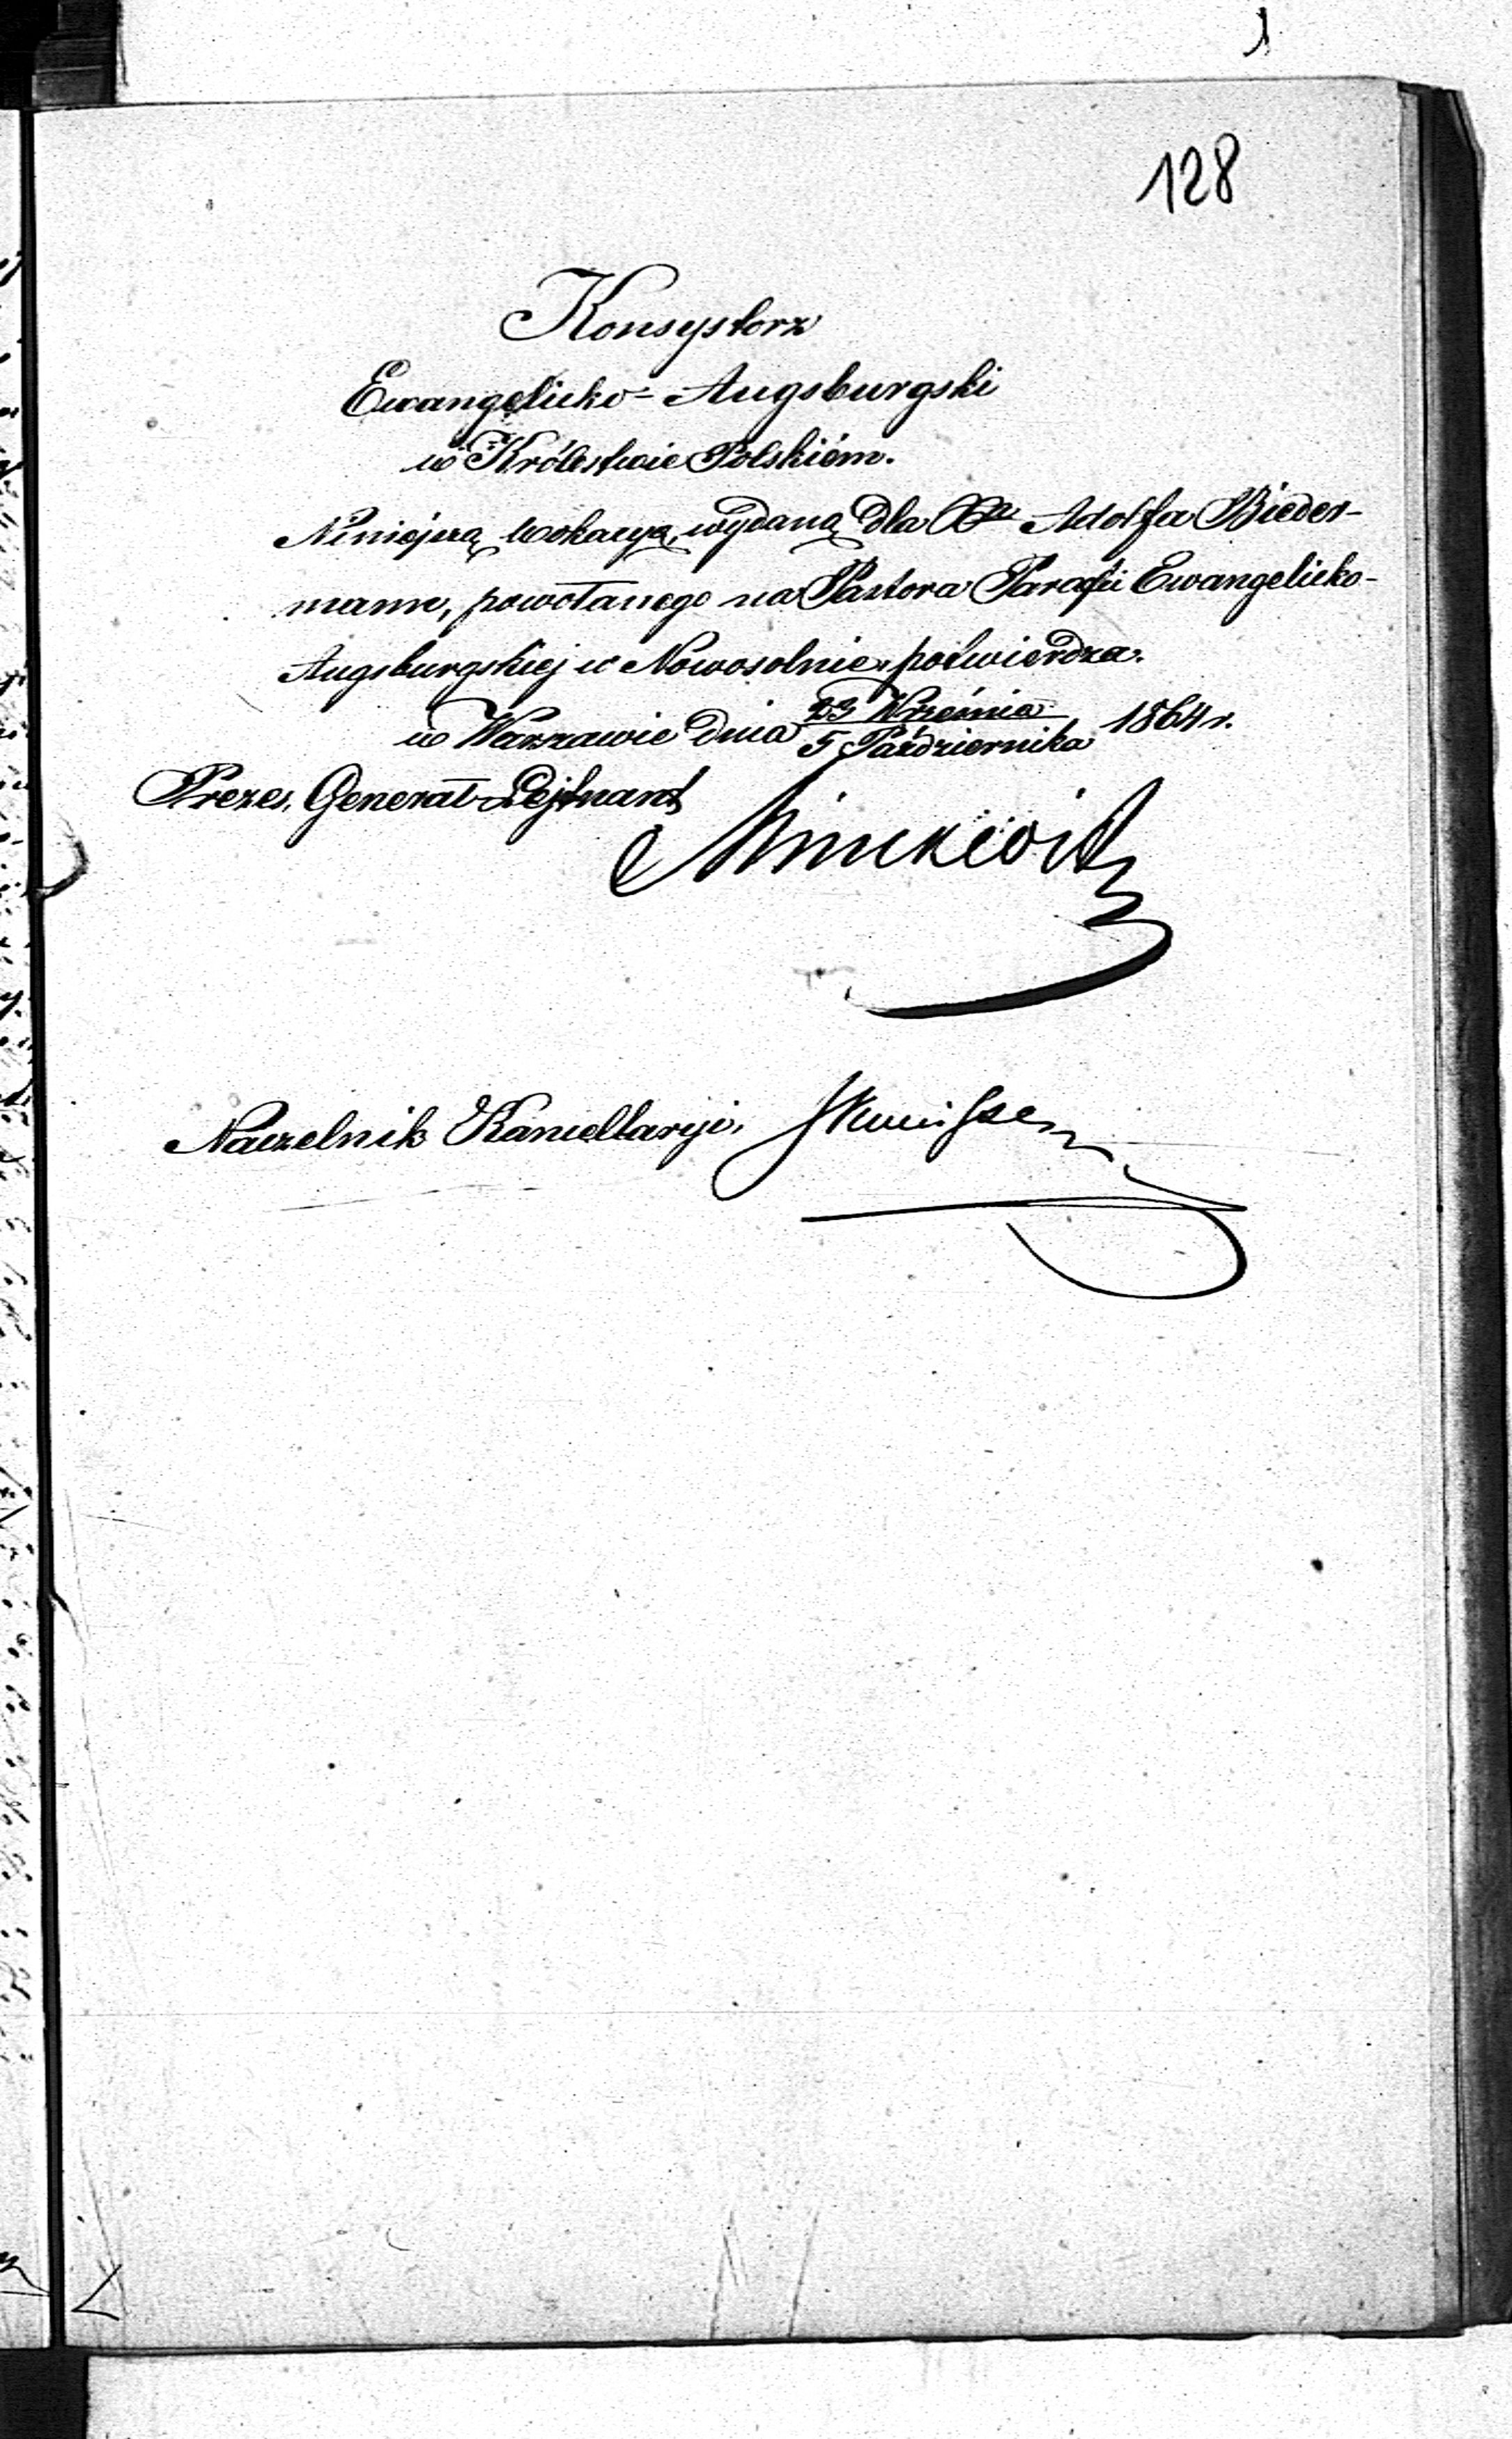 128
Konsystorz
Ewangelicko-Augsburgski
w Królestwie Polskiém.
Niniejszą wokacyą, wydaną dla Xa Adolfa Bieder-
mann, powołanego na Pastora Parafii Ewangelicko-
Augsburgskiej w Nowosolnie, potwierdza.
w Warszawie dnia 23 Września
5 Października 1864 r.
Prezes, Generał-Lejtnant
Minckwitz
Naczelnik Kancellaryi,